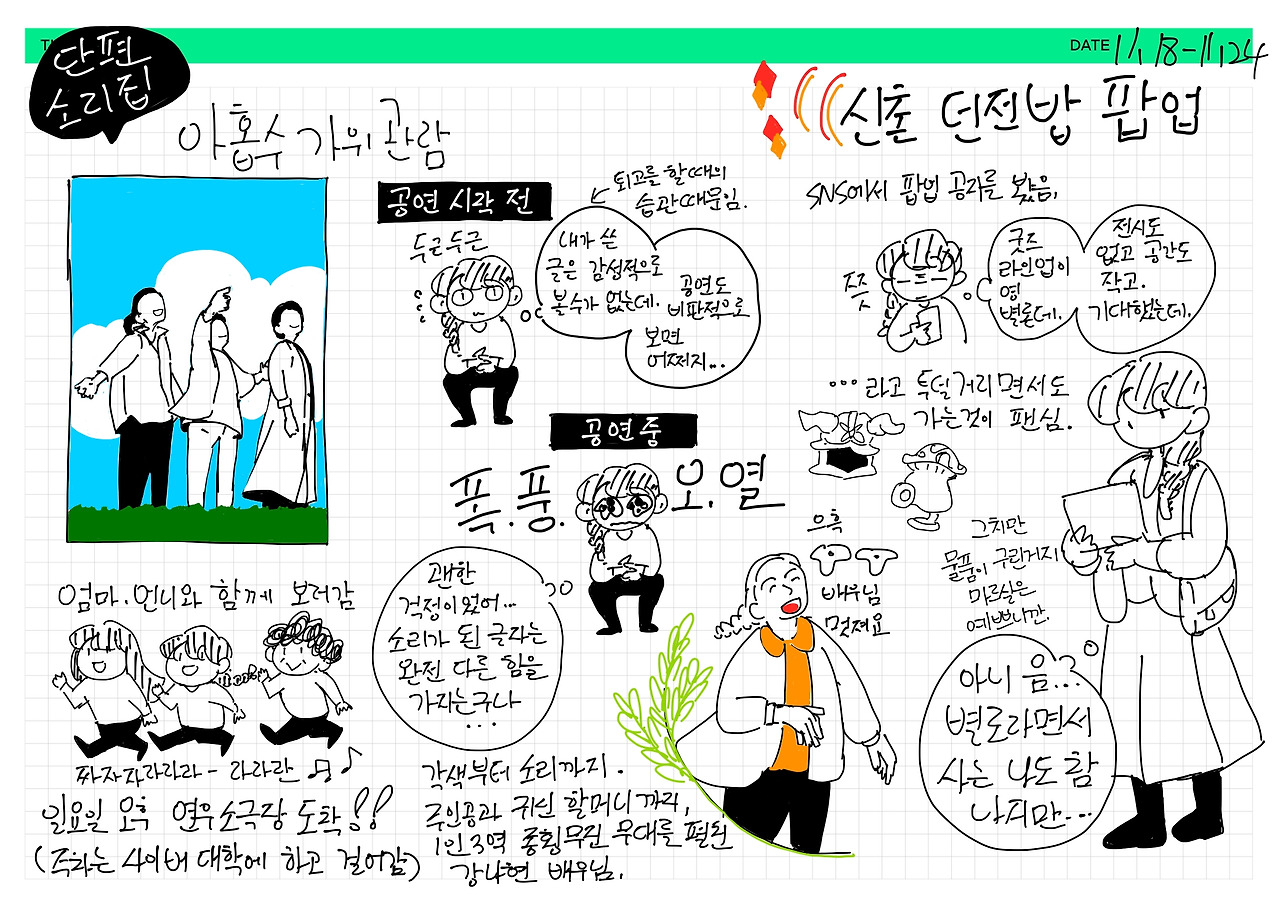 단편
소리집
DATE 11/18-11/24
아홉수 가위 관람
공연 시작 전
두근두근
퇴고를 할때의
습관때문임.
내가 쓴
글은 감성적으로
볼수가 없는데.
공연도
비판적으로
보면
어쩌지...
공연 중
폭.풍.오.열
괜한
걱정이었어...
소리가 된 글자는
완전 다른 힘을
가지는구나
...
엄마.언니와 함께 보러감
파자자라라라- 라라란
일요일 오후 연우소극장 도착!!
(주차는 사이버 대학에 하고 걸어감)
각색부터 소리까지.
주인공과 귀신 할머니까지,
1인 3역 종횡무진 무대를 펼친
강나현 배우님.
으흑
배우님
멋져요
신촌 던전밥 팝업
SNS에서 팝업 공지를 봤음.
쯧
굿즈
라인업이
영
별론데.
전시도
없고 공간도
작고.
기대했는데.
...라고 투덜거리면서도
가는것이 팬심.
그치만
물품이 구린거지
마르실은
예쁘니깐.
아니 음..?
별로라면서
사는 나도 참
나지만...